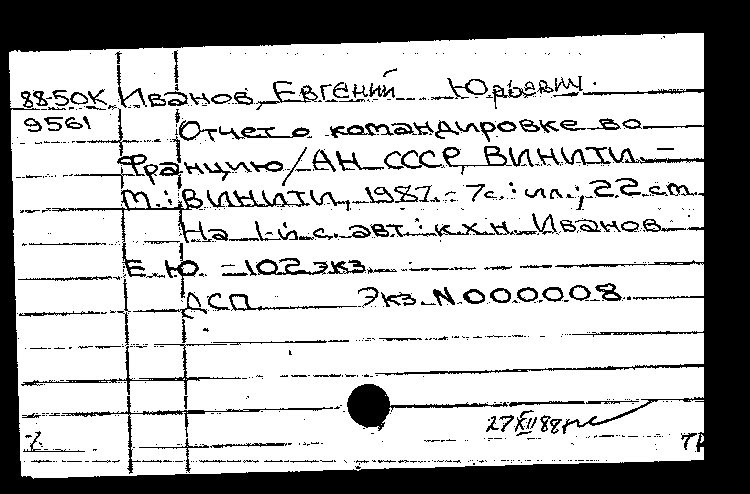 88-50К Иванов, Евгений Юрьевич.
9561 Отчет о командировке во
Францию/АН СССР, ВИНИТИ. -
М.: ВИНИТИ, 1987. - 7с.: ил.; 22 см
На 1-й с. авт.: к.х.н. Иванов
Е. Ю. - 102 экз.
ДСП Экз. N 000008
27 XII 88